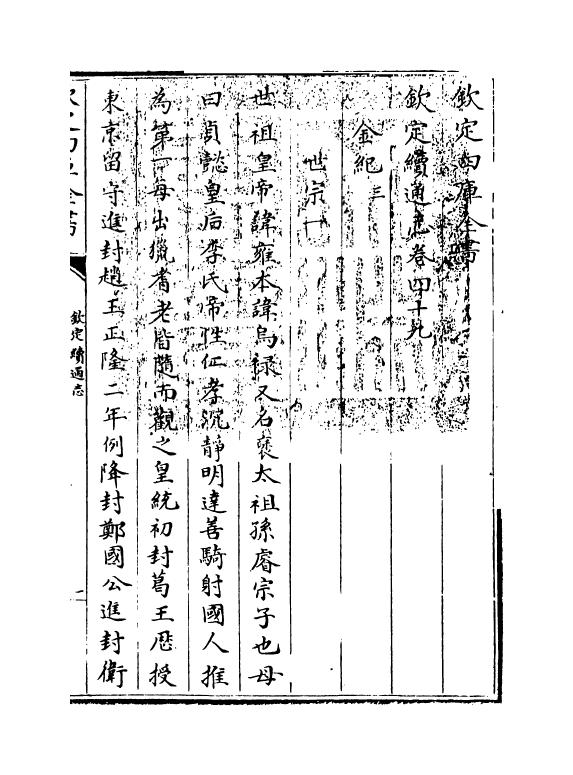 欽定四庫全書
欽定續通志卷四十九
金紀三
世宗一
世祖皇帝諱雍本諱烏祿又名褎太祖孫睿宗子也母
曰貞懿皇后李氏帝性仁孝沉靜明達善騎射國人推
為第一每出獵耆老皆隨而觀之皇統初封葛王歴授
東京留守進封趙王正隆二年例降封鄭國公進封衛
欽定四庫全書
欽定續通志
一